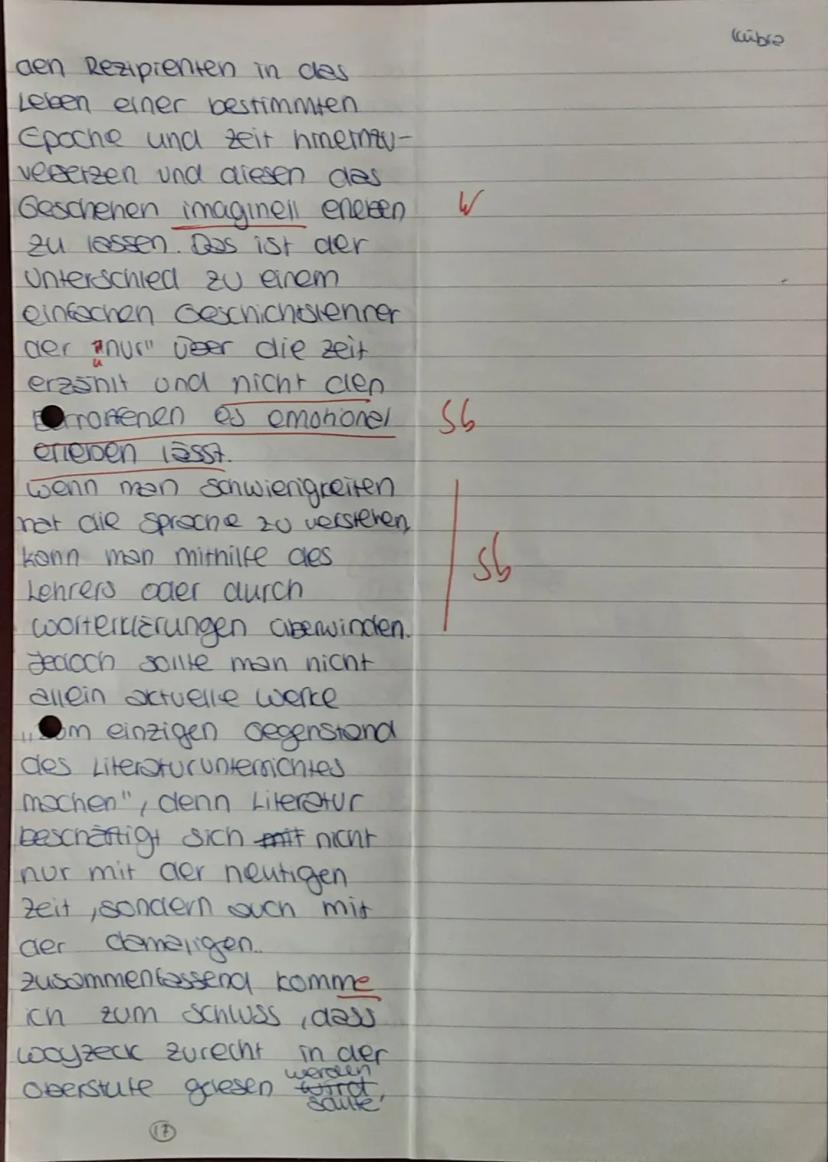 Kübra
den Rezipienten in das
Leben einer bestimmten
Epoche und Zeit hineinzu-
versetzen und diesen das
Geschehen imaginell erleben
W
zu lassen. Das ist der
Unterschied zu einem
einfachen Geschichtskenner
der "nur" über die Zeit
erzählt und nicht den
Betroffenen es emotionel
Sb
erleben lässt.
Wenn man Schwierigkeiten
hat die Sprache zu verstehen,
kann man mithilfe des
Sb
Lehrers oder durch
Worterklärungen überwinden.
Jedoch sollte man nicht
allein aktuelle Werke
„zum einzigen Gegenstand
des Literaturunterrichtes
machen", denn Literatur
beschäftigt sich mit nicht
nur mit der heutigen
Zeit, sondern auch mit
der damaligen.
Zusammenfassend komme
ich zum Schluss, dass
Woyzeck zurecht in der
Oberstufe gelesen werden
wird
sollte.
17